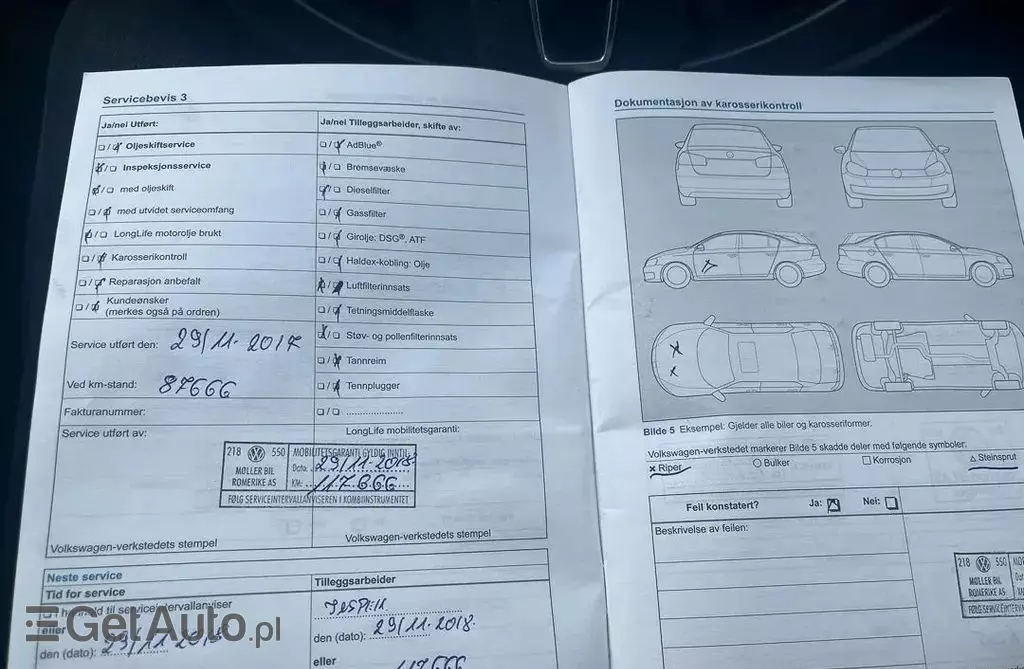 Servicebevis 3
Ja/nei Utført:
☐/☒ Oljeskiftservice
☒/☐ Inspeksjonsservice
☒/☐ med oljeskift
☐/☒ med utvidet serviceomfang
☒/☐ LongLife motorolje brukt
☐/☒ Karosserikontroll
☐/☒ Reparasjon anbefalt
☐/☒ Kundeønsker
(merkes også på ordren)
Service utført den: 29/11-2017
Ved km-stand: 87666
Fakturanummer:
Service utført av:
Ja/nei Tilleggsarbeider, skifte av:
☐/☒ AdBlue®
☒/☐ Bremsevæske
☒/☐ Dieselfilter
☐/☒ Gassfilter
☐/☒ Girolje: DSG®, ATF
☐/☒ Haldex-kobling: Olje
Luftfilterinnsats
☐/☒ Tetningsmiddelflaske
☒/☐ Støv- og pollenfilterinnsats
☐/☒ Tannreim
☐/☒ Tennplugger
☐/☐ ......................
LongLife mobilitetsgaranti:
218 550 MOBILITETSGARANTI GYLDIG INNTIL
MØLLER BIL Dato: 29/11-2018
ROMERIKE AS KM: 117.666
FØLG SERVICEINTERVALLANVISEREN I KOMBIINSTRUMENTET
Volkswagen-verkstedets stempel
Volkswagen-verkstedets stempel
Neste service
Tid for service
til serviceintervallanviser
eller
den (dato): 29/11-2018
Tilleggsarbeider
den (dato): 29/11-2018.
eller
117666
Dokumentasjon av karosserikontroll
Bilde 5 Eksempel: Gjelder alle biler og karosseriformer.
Volkswagen-verkstedet markerer Bilde 5 skadde deler med følgende symboler.
× Riper ○ Bulker ☐ Korrosjon △ Steinsprut
Feil konstatert? Ja: ☒ Nei: ☐
Beskrivelse av feilen:
218 550
MØLLER BIL
ROMERIKE AS
FØLG SERVICEINTERV
GetAuto.pl